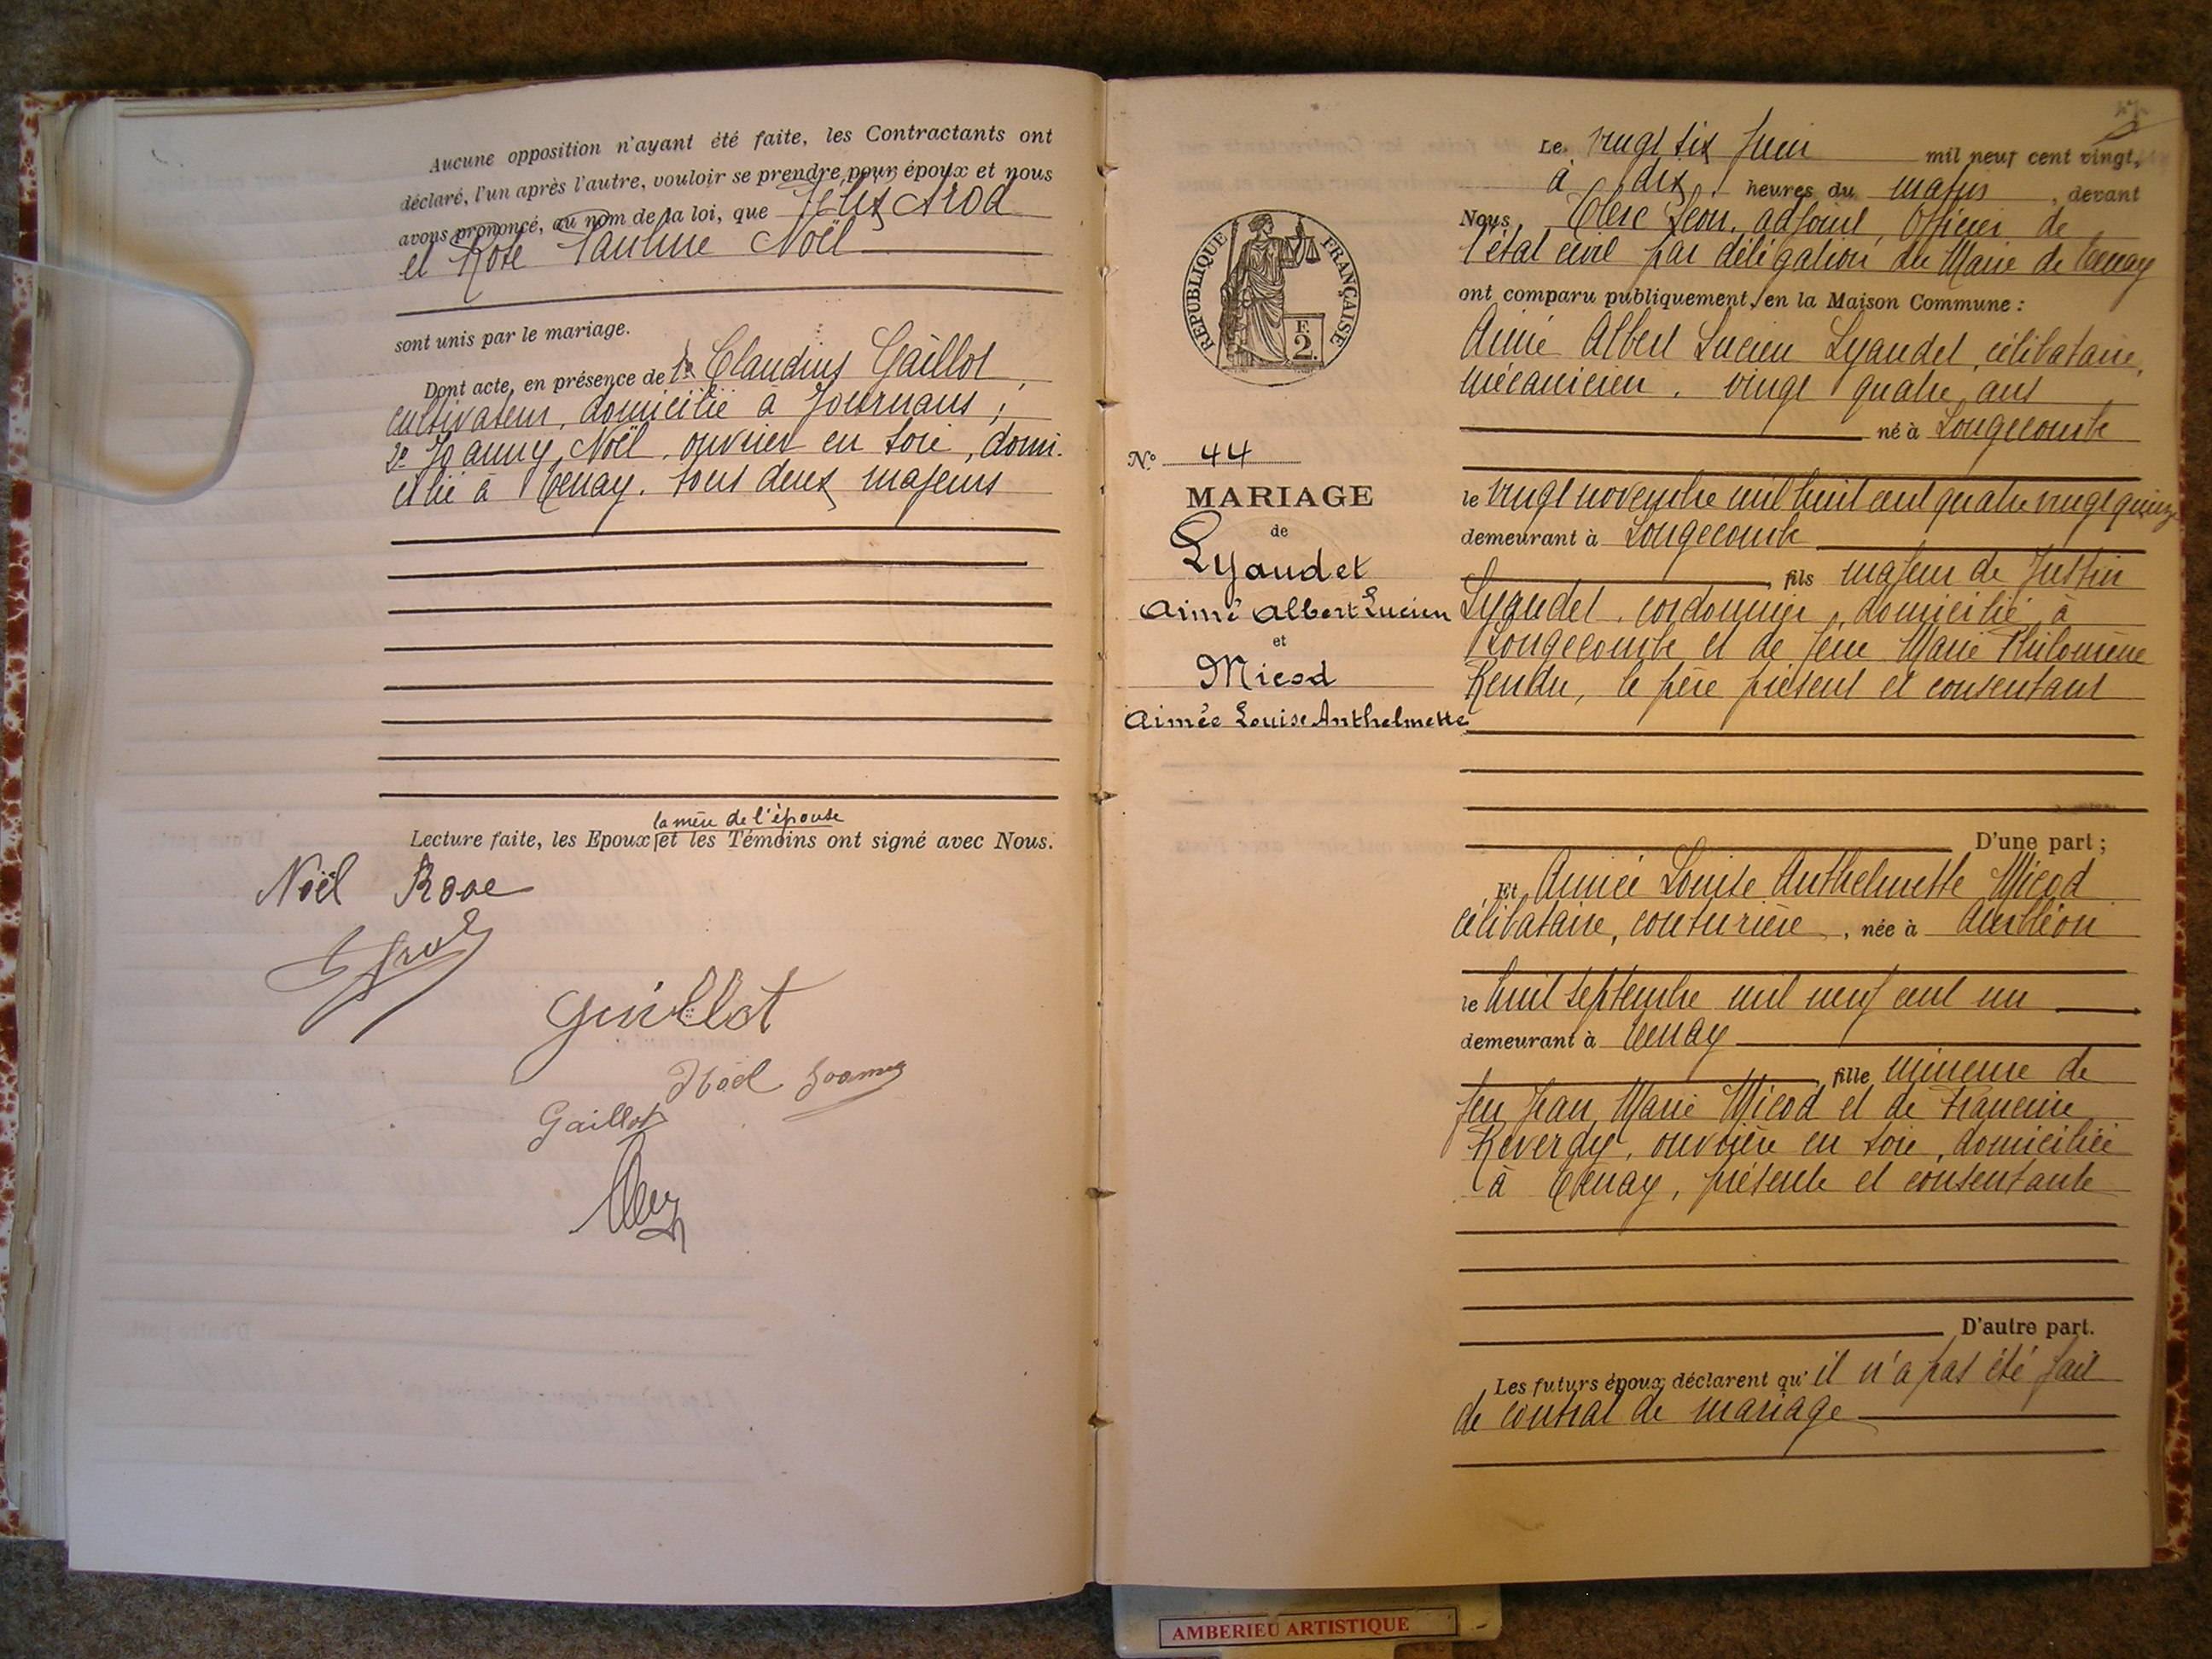 Aucune opposition n'ayant été faite, les Contractants ont
déclaré, l'un après l'autre, vouloir se prendre pour époux et nous
avons prononcé, au nom de la loi, que Félix Arod
et Rose Pauline Noël
sont unis par le mariage.
Dont acte, en présence de 1º Claudius Gaillot,
cultivateur, domicilié à Journans;
2º Joanny Noël, ouvrier en soie, domi-
cilié à Tenay. tous deux majeurs
la mère de l'épouse
Lecture faite, les Epoux et les Témoins ont signé avec Nous.
Noël Rose
Guillot
Noël Joanny
Gaillot
RÉPUBLIQUE FRANÇAISE
F.
2.
Nº 44
MARIAGE
de
Lyaudet
Aimé Albert Lucien
et
Micod
Aimée Louise Anthelmette
Le vingt six Juin mil neuf cent vingt,
à dix heures du matin, devant
Nous, Clerc Léon, adjoint, Officier de
l'état civil par délégation du Maire de Tenay
ont comparu publiquement, en la Maison Commune:
Aimé Albert Lucien Lyaudet, célibataire,
mécanicien, vingt quatre ans
né à Longecombe
le vingt novembre mil huit cent quatre vingt quinze
demeurant à Longecombe
fils majeur de Justin
Lyaudet, cordonnier, domicilié à
Longecombe et de feue Marie Philomène
Rendu, le père présent et consentant
D'une part;
Et Aimée Louise Anthelmette Micod
célibataire, couturière, née à Ambléon
le huit septembre mil neuf cent un
demeurant à Tenay
fille mineure de
feu Jean Marie Micod et de Francine
Reverdy, ouvrière en soie, domiciliée
à Tenay, présente et consentante
D'autre part.
Les futurs époux déclarent qu'il n'a pas été fait
de contrat de mariage
AMBERIEU ARTISTIQUE